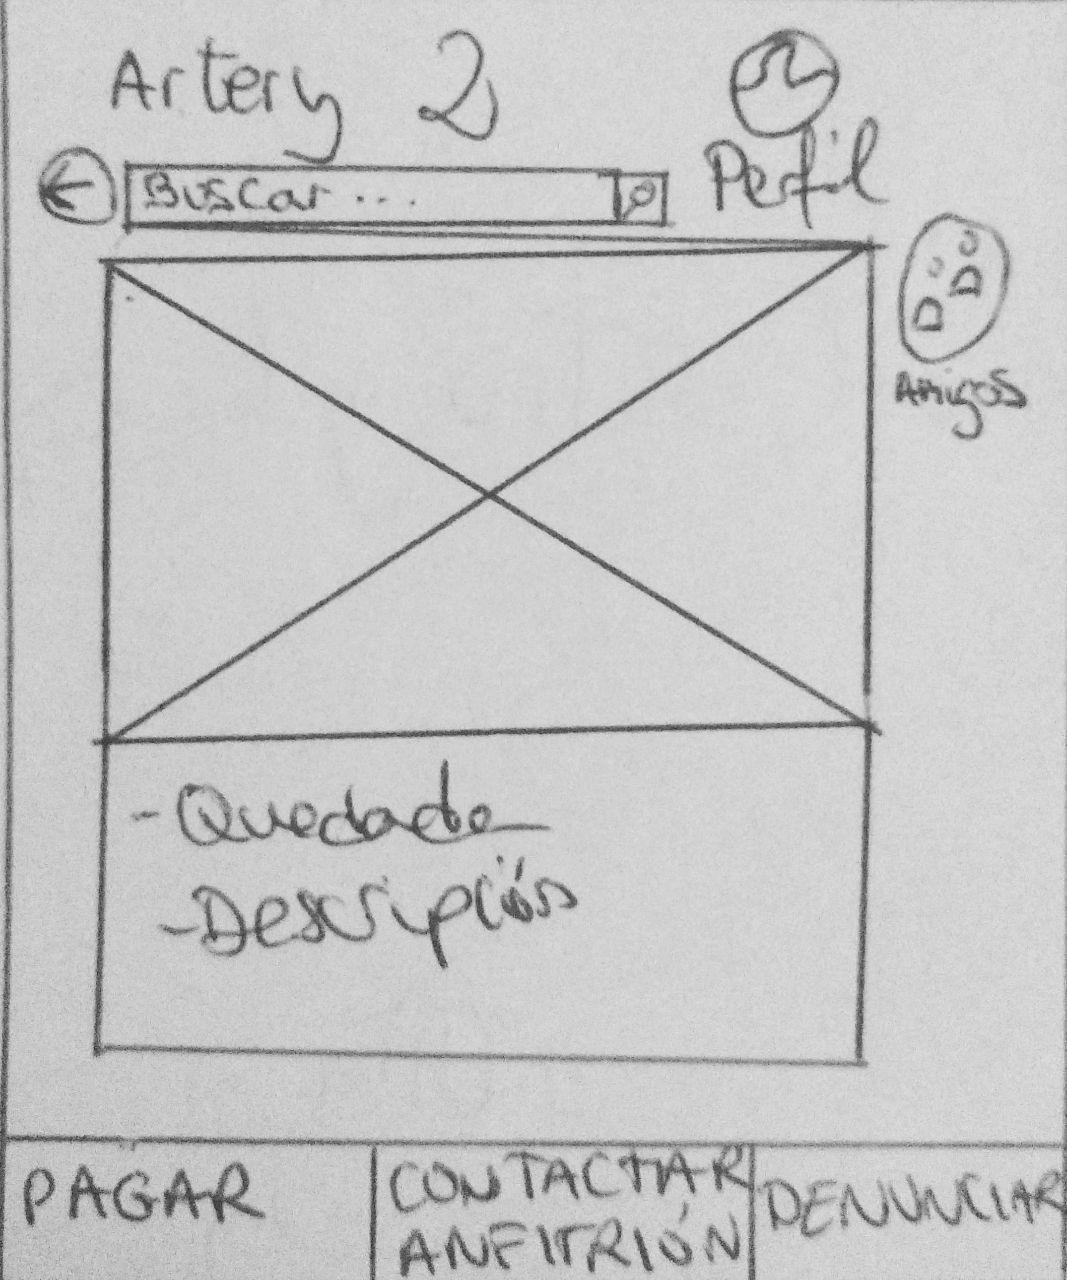 Artery 2
Perfil
Buscar ...
Amigos
- Quedada
- Descripción
PAGAR
CONTACTAR
ANFITRIÓN
DENUNCIAR